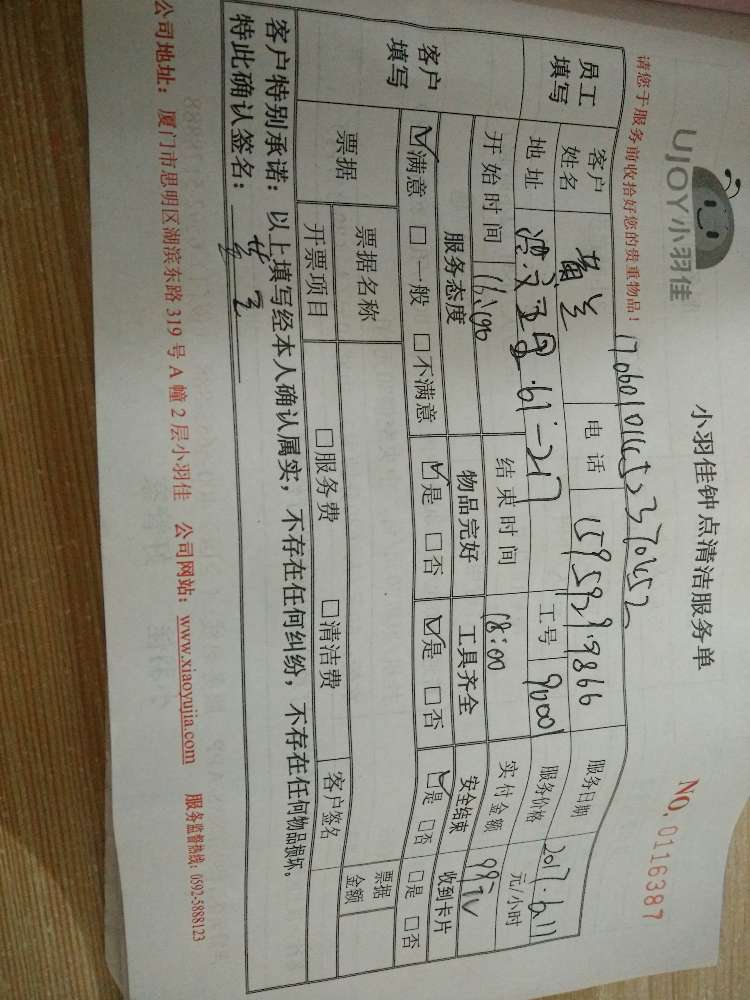 UJOY小羽佳
小羽佳钟点清洁服务单
NO. 0116387
请您于服务前收拾好您的贵重物品！
员工填写
客户姓名
电话
服务日期 2017.6.11
地址
工号 90001
服务价格 元/小时
开始时间
结束时间 18:00
实付金额
客户填写
服务态度 物品完好 工具齐全 安全结束 收到卡片
☑满意 □一般 □不满意 ☑是 □否 ☑是 □否 ☑是 □否 □是 □否
票据 票据名称 票据金额
开票项目 □服务费 □清洁费 客户签名
客户特别承诺：以上填写经本人确认属实，不存在任何纠纷，不存在任何物品损坏。
特此确认签名：
公司地址：厦门市思明区湖滨东路 319 号 A 幢 2 层小羽佳 公司网站：www.xiaoyujia.com 服务监督热线：0592-5888123